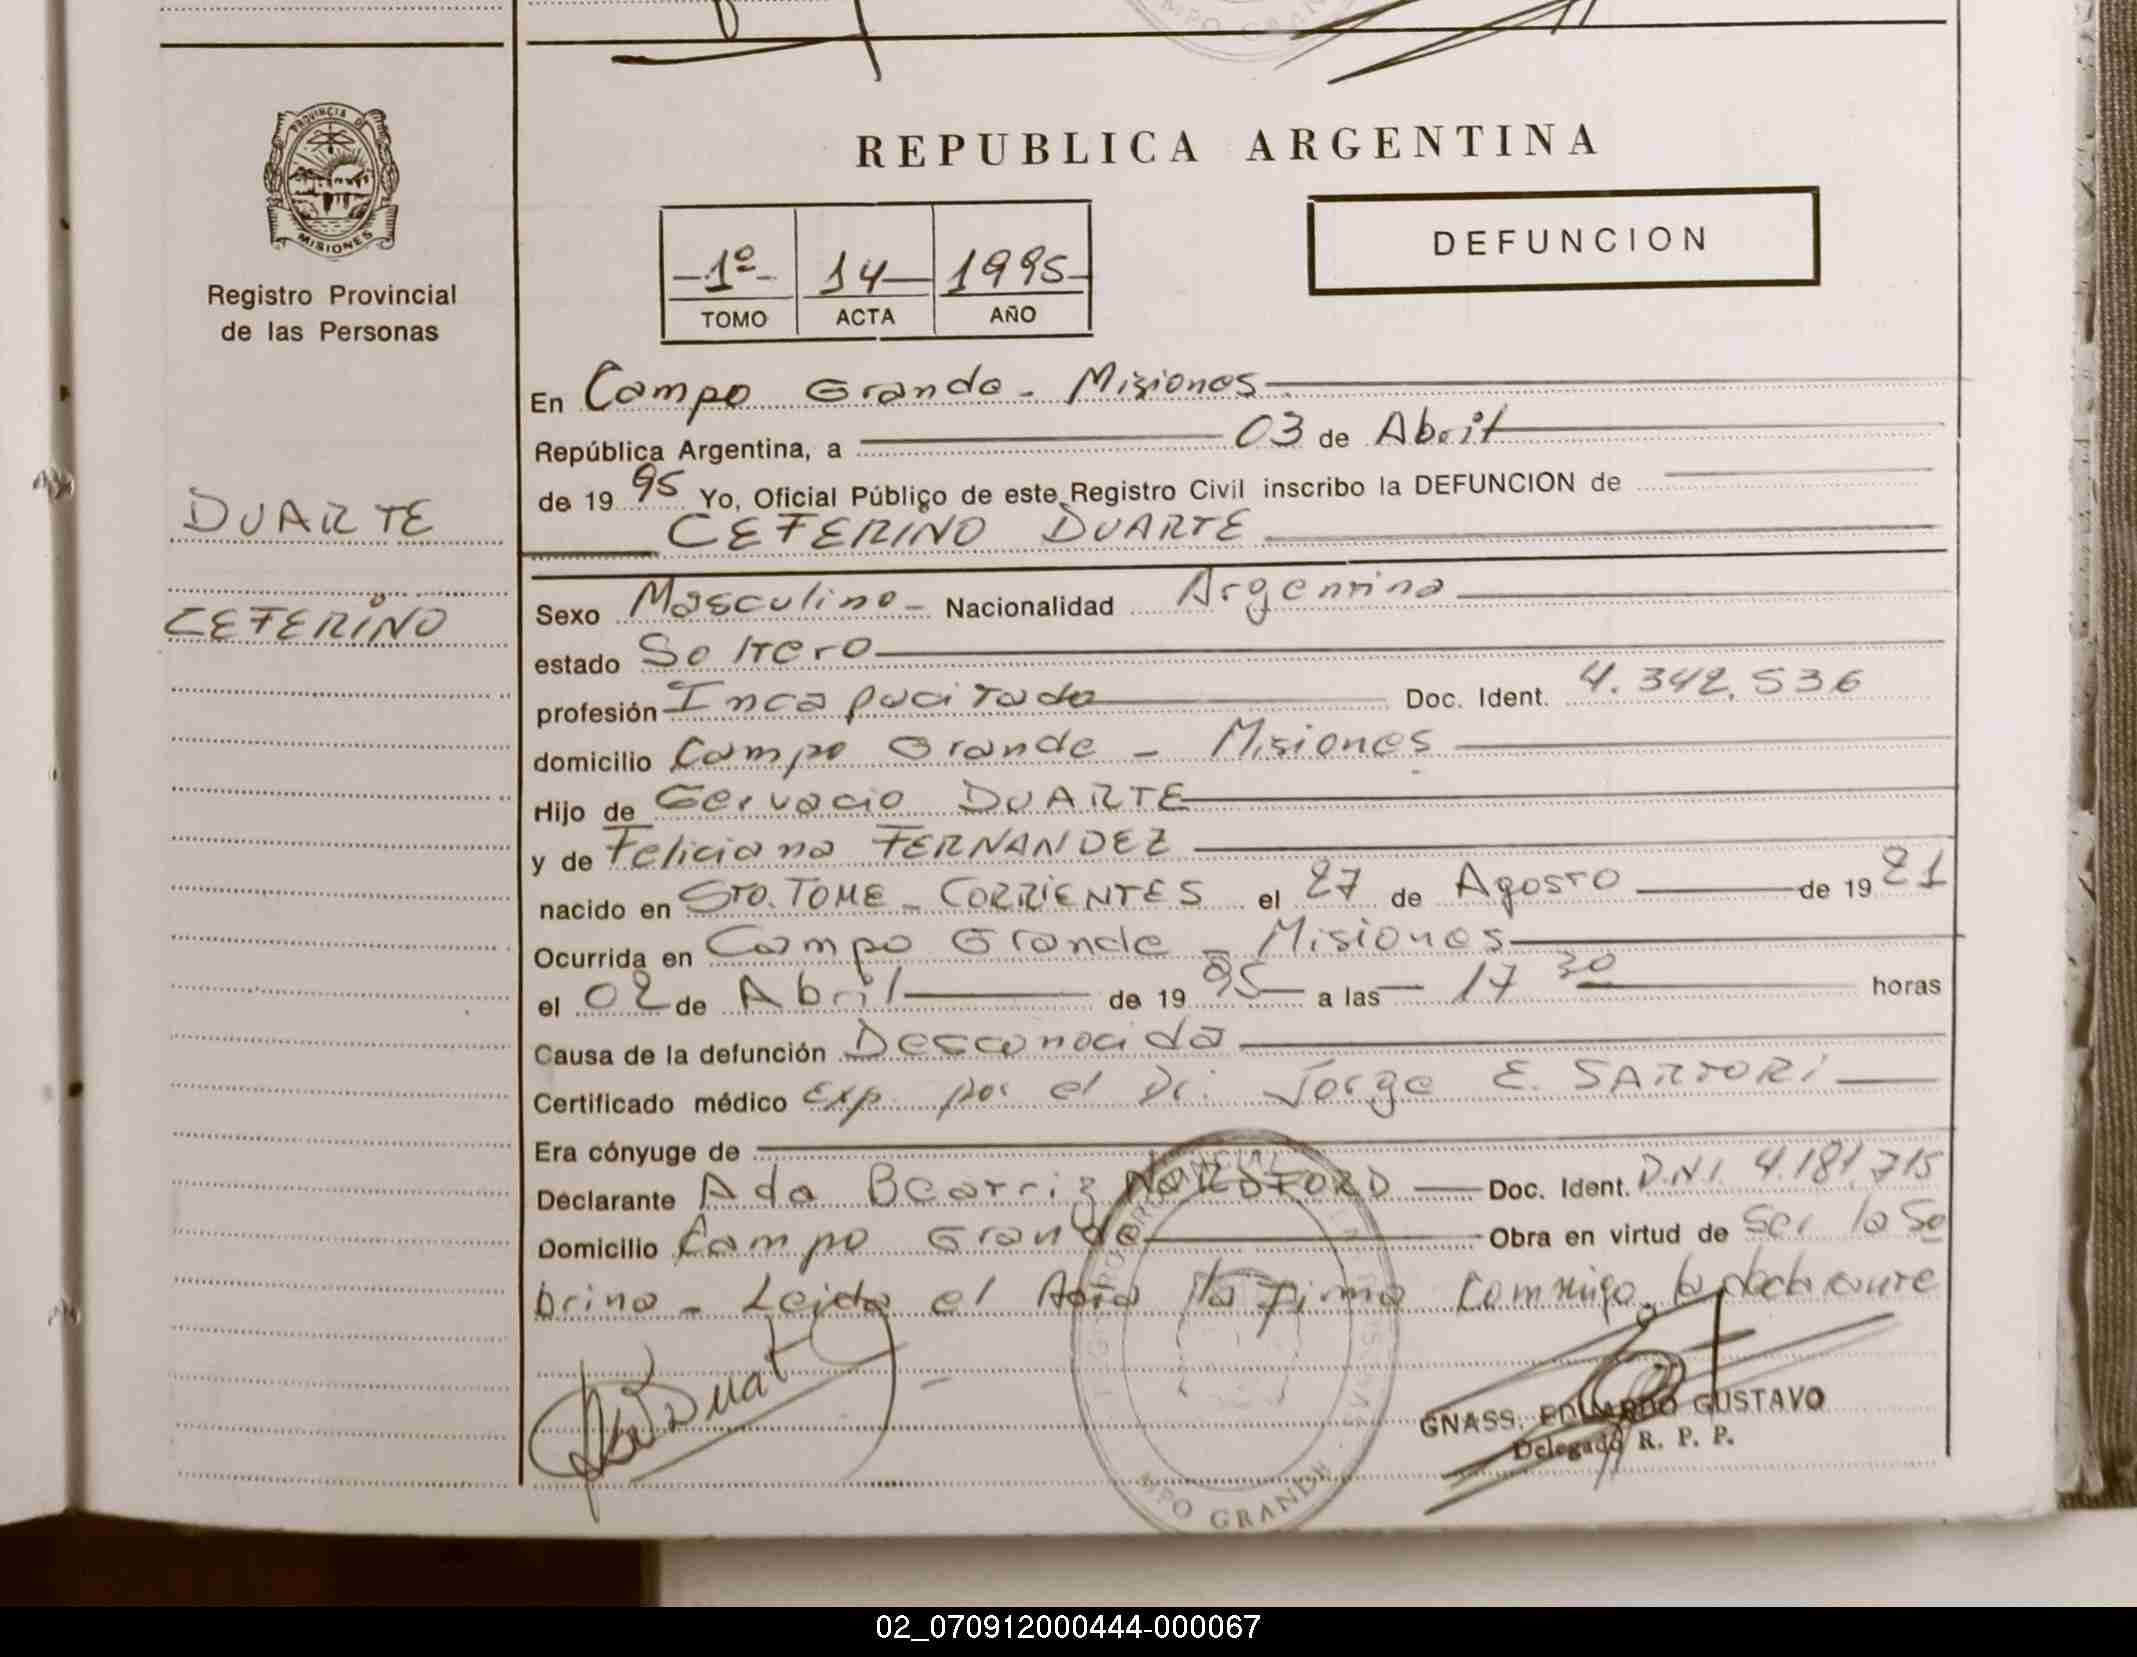 PROVINCIA DE
MISIONES
Registro Provincial
de las Personas
DUARTE
CEFERINO
REPUBLICA ARGENTINA
1º 14 1995
TOMO ACTA AÑO
DEFUNCION
En Campo Grande - Misiones
República Argentina, a 03 de Abril
de 1995 Yo, Oficial Público de este Registro Civil inscribo la DEFUNCION de
CEFERINO DUARTE
Sexo Masculino - Nacionalidad Argentina
estado Soltero
profesión Incapacitado Doc. Ident. 4.342.536
domicilio Campo Grande - Misiones
Hijo de Gervacio DUARTE
y de Feliciana FERNANDEZ
nacido en STO. TOME - CORRIENTES el 27 de Agosto de 1921
Ocurrida en Campo Grande - Misiones
el 02 de Abril de 1995 a las 17 30 horas
Causa de la defunción Desconocida
Certificado médico Exp. por el Dr. Jorge E. SARTORI
Era cónyuge de
Declarante Ada Beatriz Doc. Ident. D.N.I. 4.181.715
Domicilio Campo Grande Obra en virtud de ser la So
brina - Leida el Acta la firma conmigo la declarante
GNASS. EDUARDO GUSTAVO
Delegado R. P. P.
MPO GRANDE
02_070912000444-000067